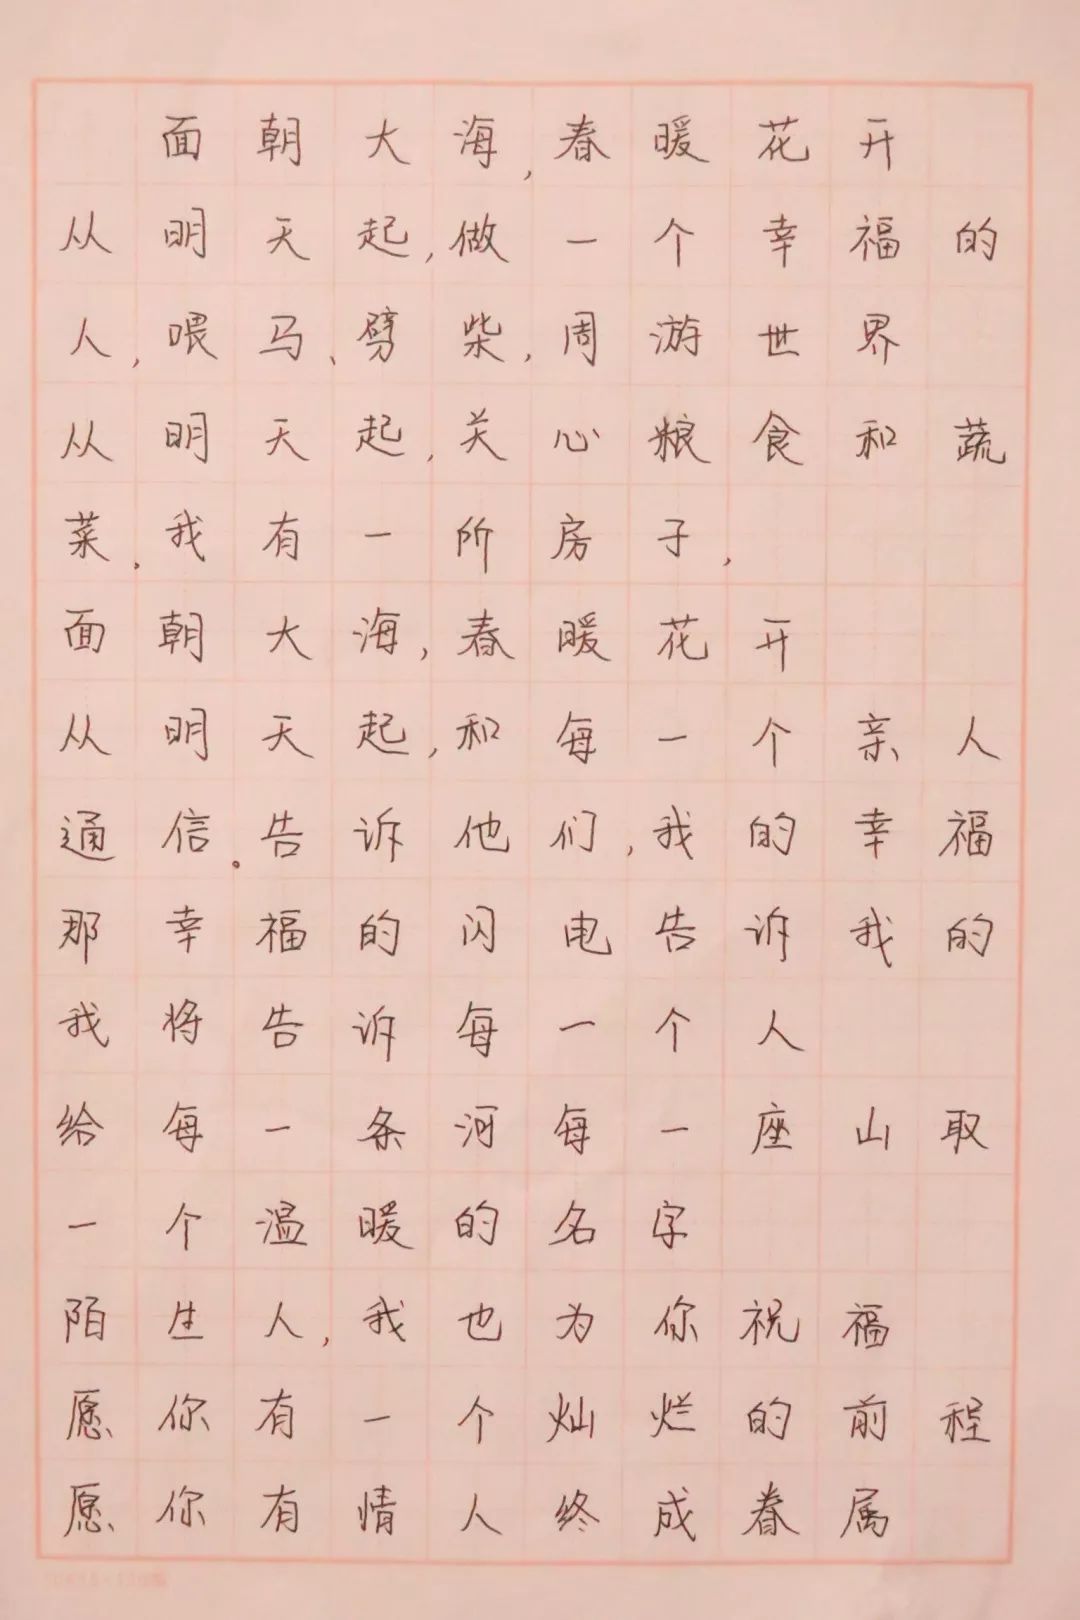 面朝大海,春暖花开
从明天起,做一个幸福的
人,喂马、劈柴,周游世界
从明天起,关心粮食和蔬
菜,我有一所房子,
面朝大海,春暖花开
从明天起,和每一个亲人
通信。告诉他们,我的幸福
那幸福的闪电告诉我的
我将告诉每一个人
给每一条河每一座山取
一个温暖的名字
陌生人,我也为你祝福
愿你有一个灿烂的前程
愿你有情人终成眷属